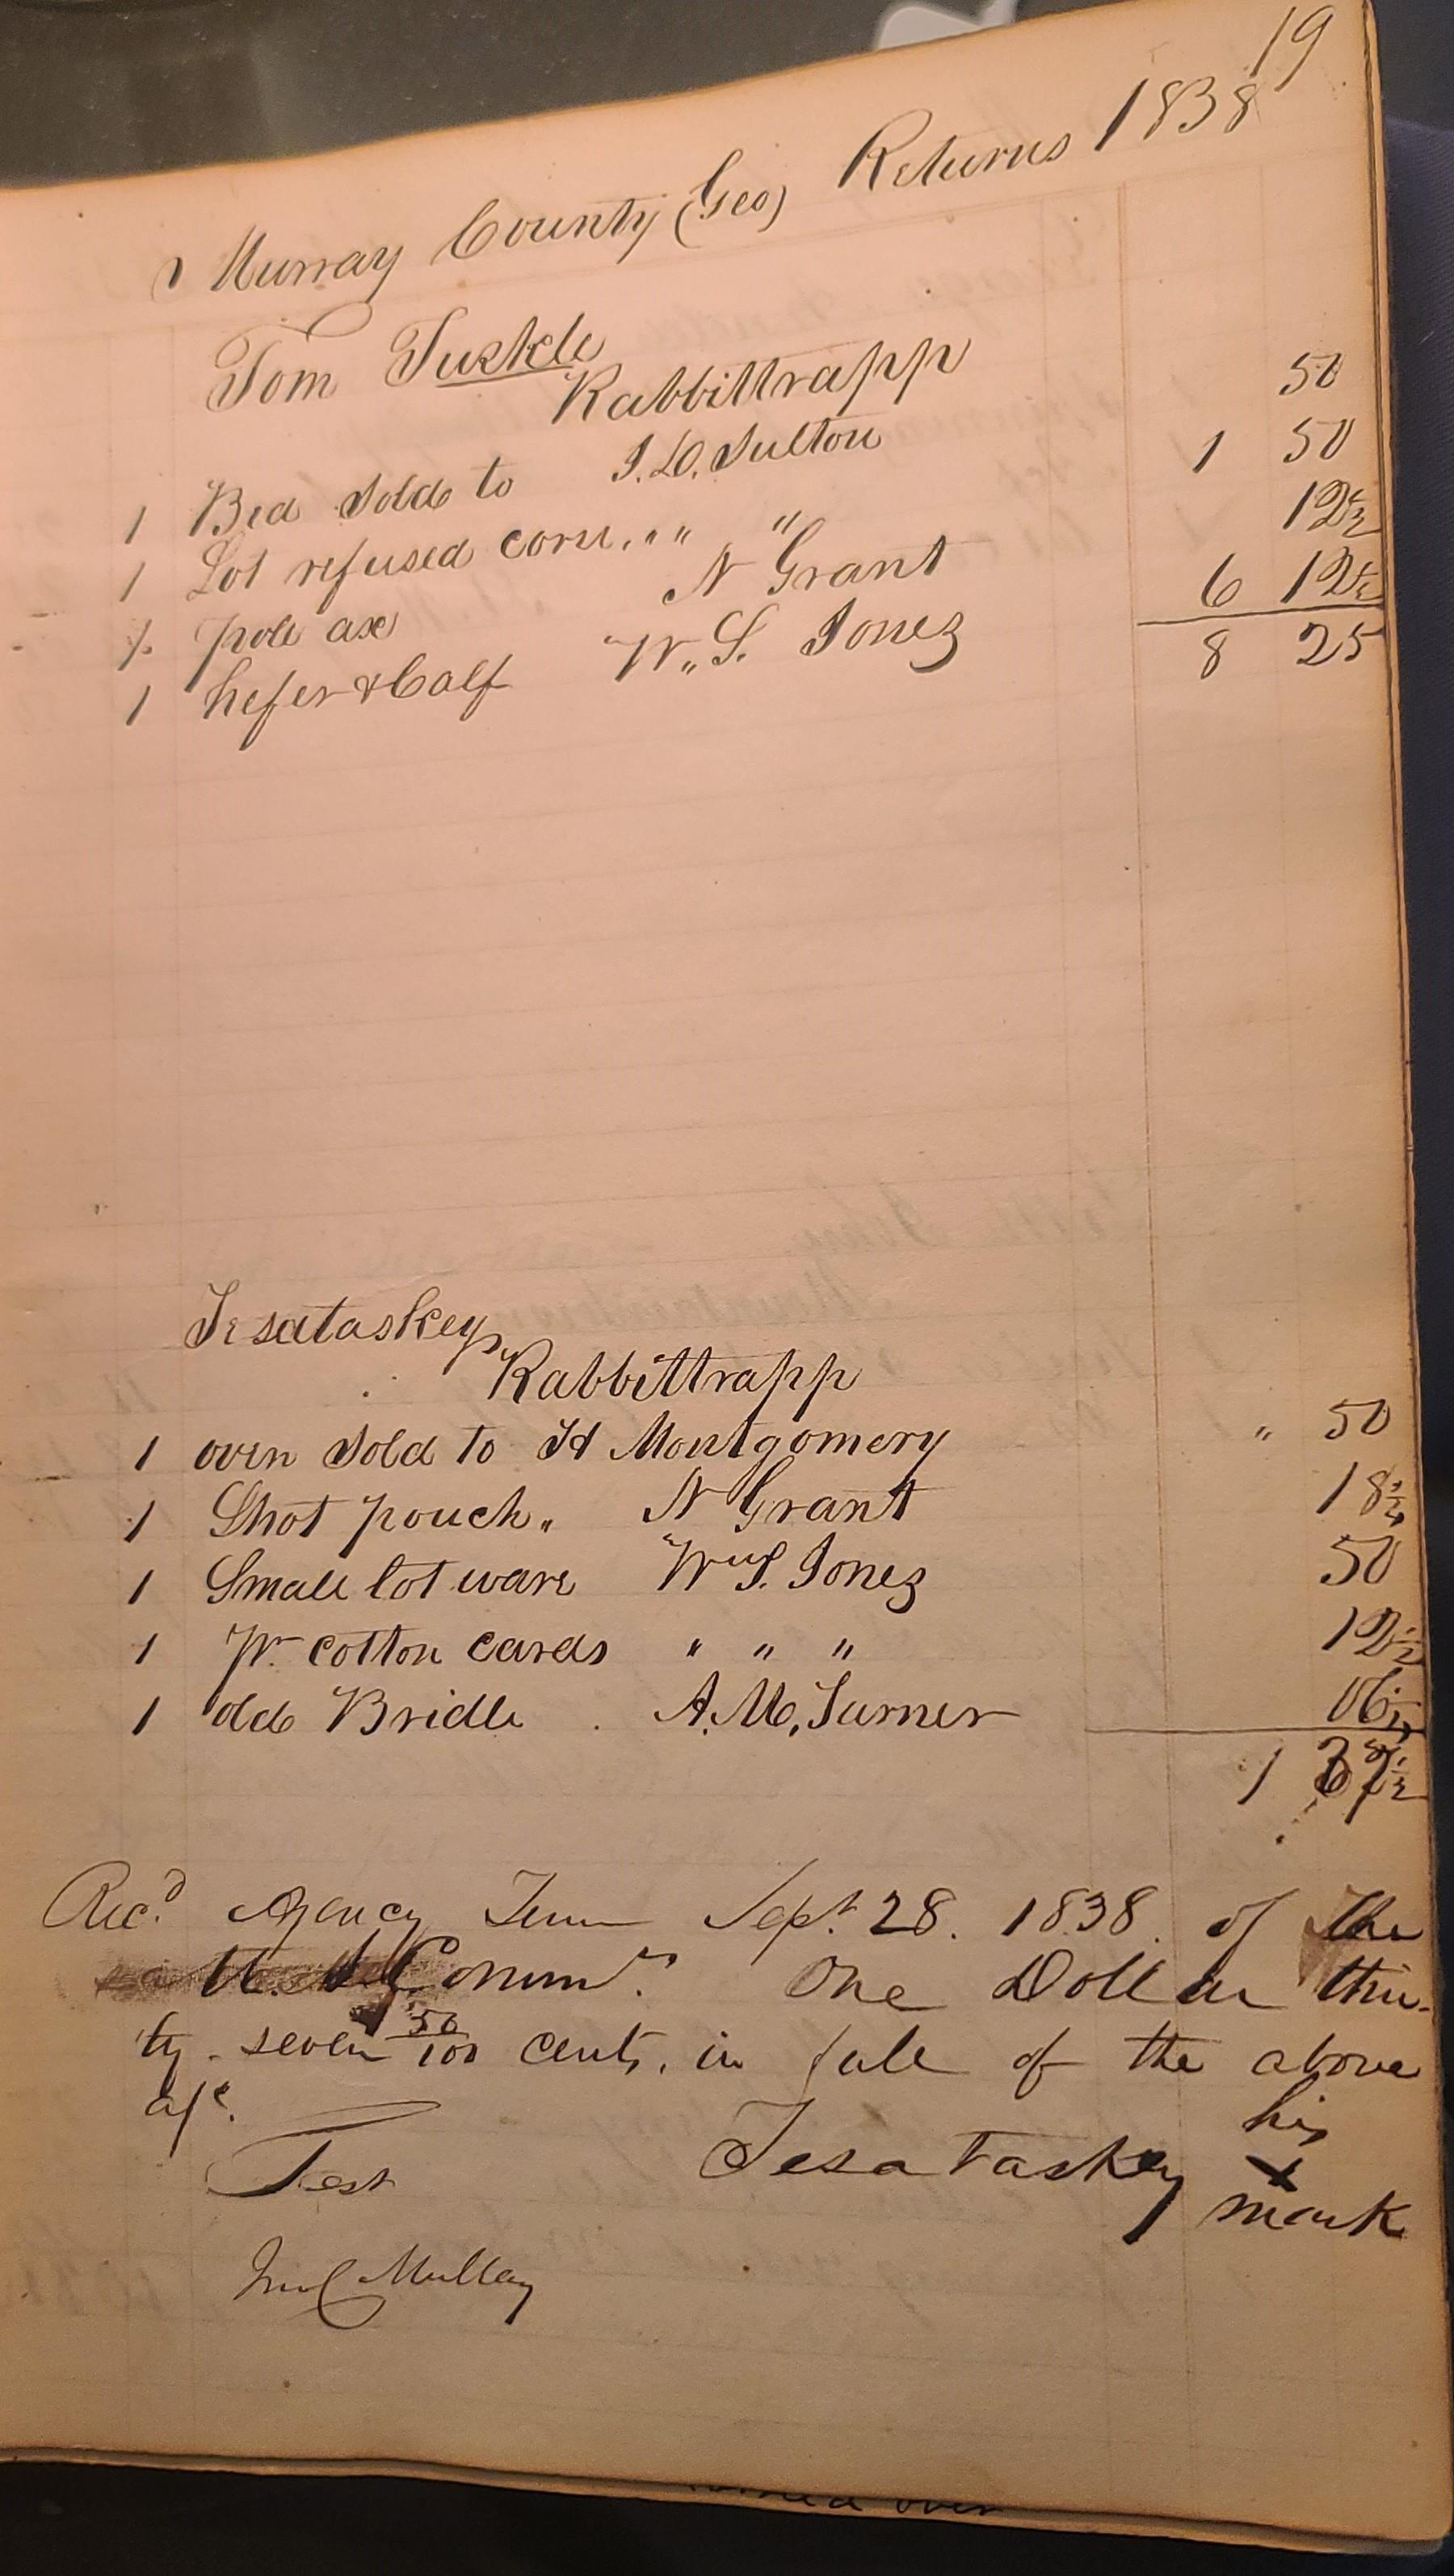 19
Murray County (Geo) Returns 1838
Tom
Rabbittrapp
1 Bed Sold to J. D. Sutton 50
1 Lot refused corn. " " " 1 50
1 pole axe N Grant 12½
1 hefer & Calf W. S. Jones 6 12½
8 25
Tesataskey
Rabbittrapp
1 oven Sold to H Montgomery " 50
1 Shot pouch " N Grant 18¾
1 Small lot ware Wm S. Jones 50
1 pr cotton cards " " " 12½
1 old Bridle A. M. Turner 06¼
1 37½
Recd. Agency Tenn Sept. 28. 1838. of the
U. S. Commrs. One Dollar thir-
ty-seven 50/100 cents. in full of the above
a/c.
his
Test Tesataskey x
mark
Jno C Mullay
over